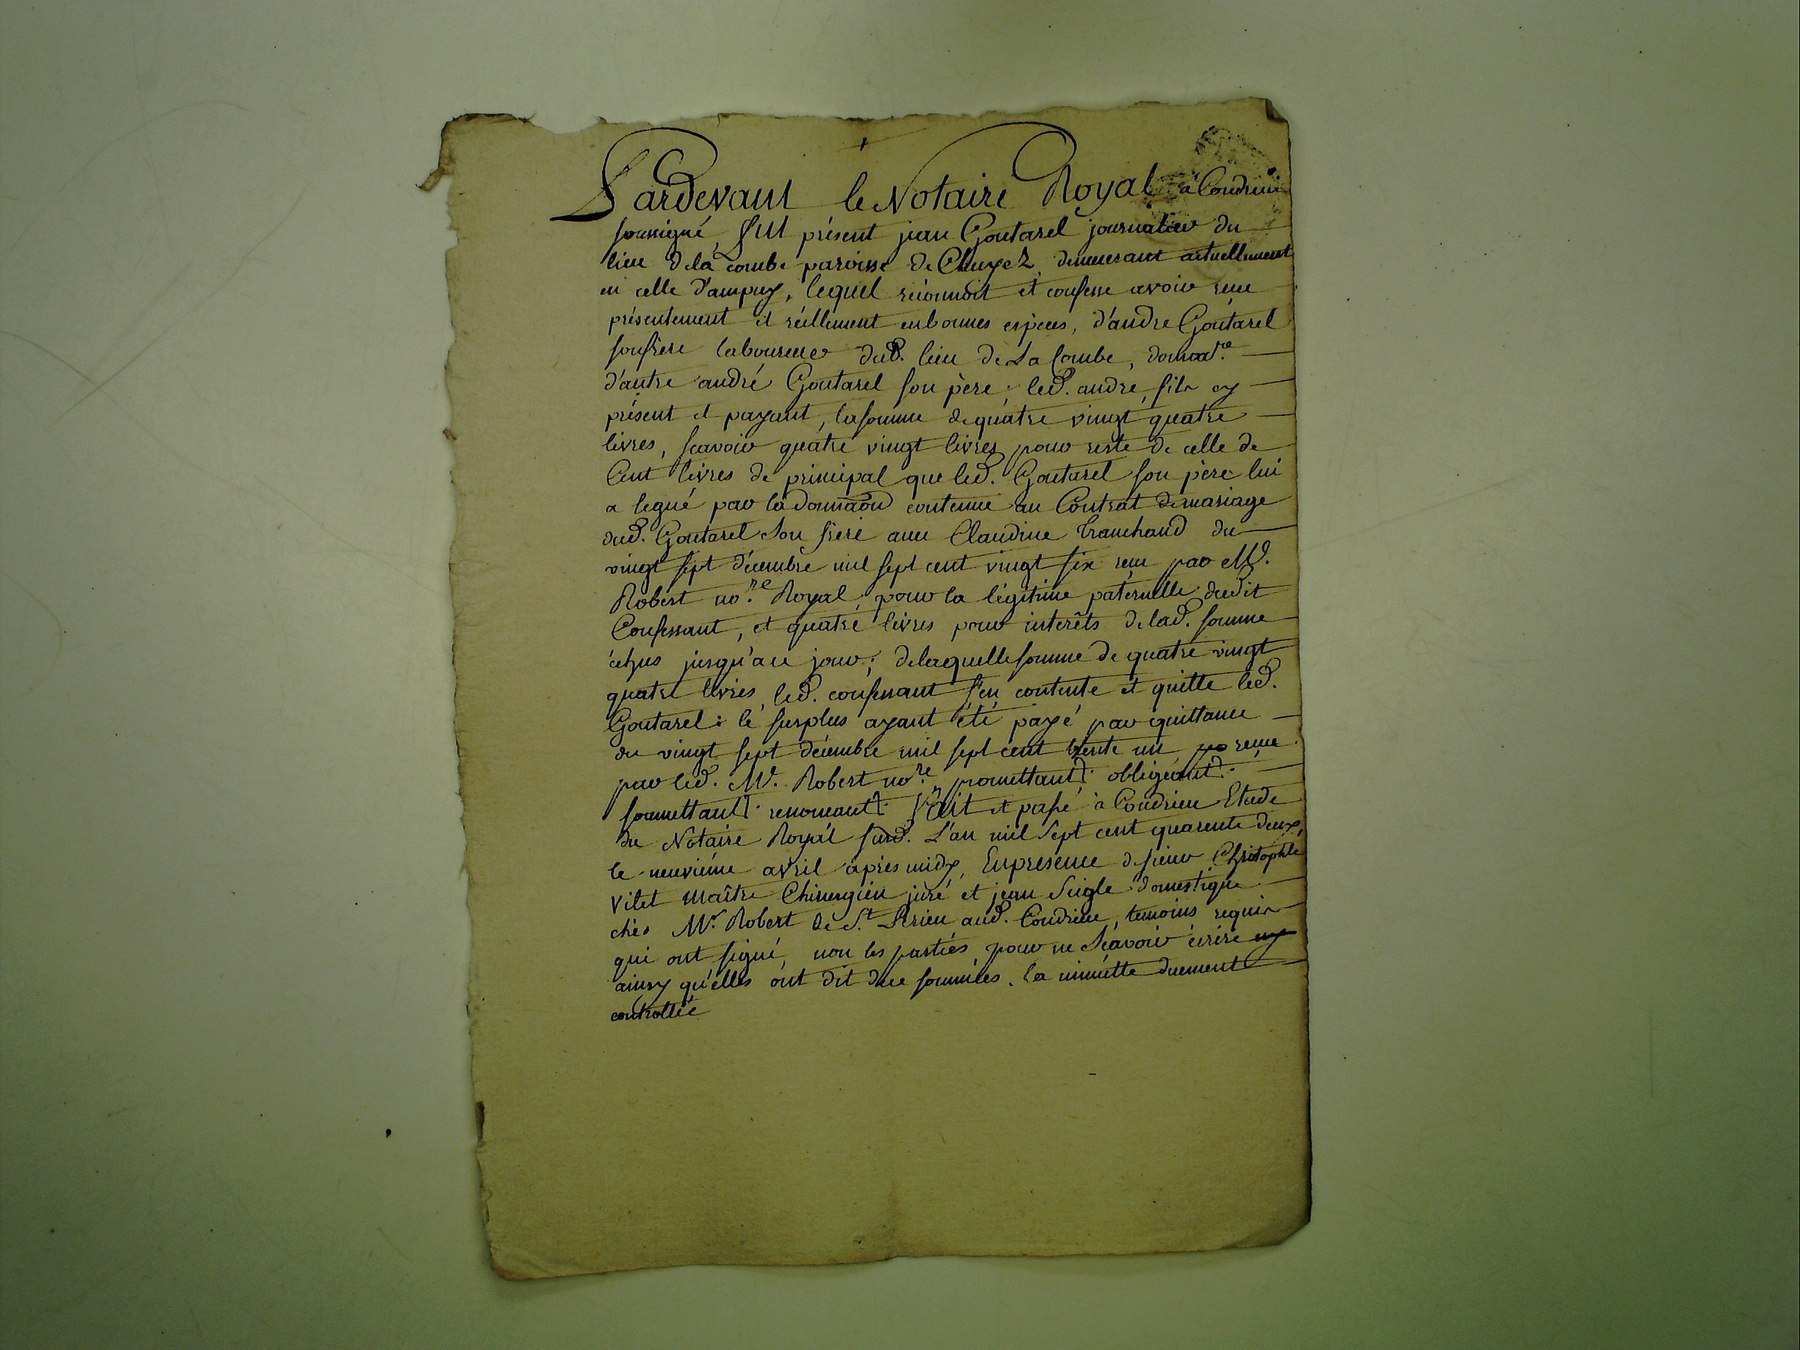 Pardevant le Notaire Royal à Condrieu
soussigné, fut présent jean Goutarel journalier du
lieu de la Combe paroisse de Chuyez, demeurant actuellement
en celle d'ampuy, lequel réconnoit et confesse avoir reçu
présentement et réellement en bonnes espèces, d'andré Goutarel
son frère laboureur dud. lieu de La Combe, donnat.re
d'autre andré Goutarel son père; led. andré, fils cy
présent et payant, la somme de quatre vingt quatre
livres, scavoir quatre vingt livres pour reste de celle de
Cent livres de principal que led. Goutarel son père lui
a legué par la donnaôn contenue au Contrat de mariage
dud. Goutarel son frère avec Claudine Tranchand du
vingt sept décembre mil sept cent vingt six reçu par Me.
Robert no.re Royal, pour la légitime paternelle dudit
Confessant, et quatre livres pour interêts de lad. somme
échus jusqu'a ce jour; de laquelle somme de quatre vingt
quatre livres, led. confessant s'en contente et quitte led.
Goutarel: le surplus ayant été payé par quittance
du vingt sept décembre mil sept cent trente un reçue
par led. Me. Robert no.re, promettant. obligeant.
soumettant. renonceant. fait et passé à Condrieu Etude
du Notaire Royal susd. L'an mil sept cent quarente deux,
le neuvième avril après midy, En presence de sieur Christophle
Vitet maître Chirurgien juré et jean Seigle domestique
chés Mr. Robert de St. aud. Condrieu, temoins requis
qui ont signé, non les parties, pour ne scavoir écrire
ainsy qu'elles ont dit de ce sommées. la minutte duement
controllée